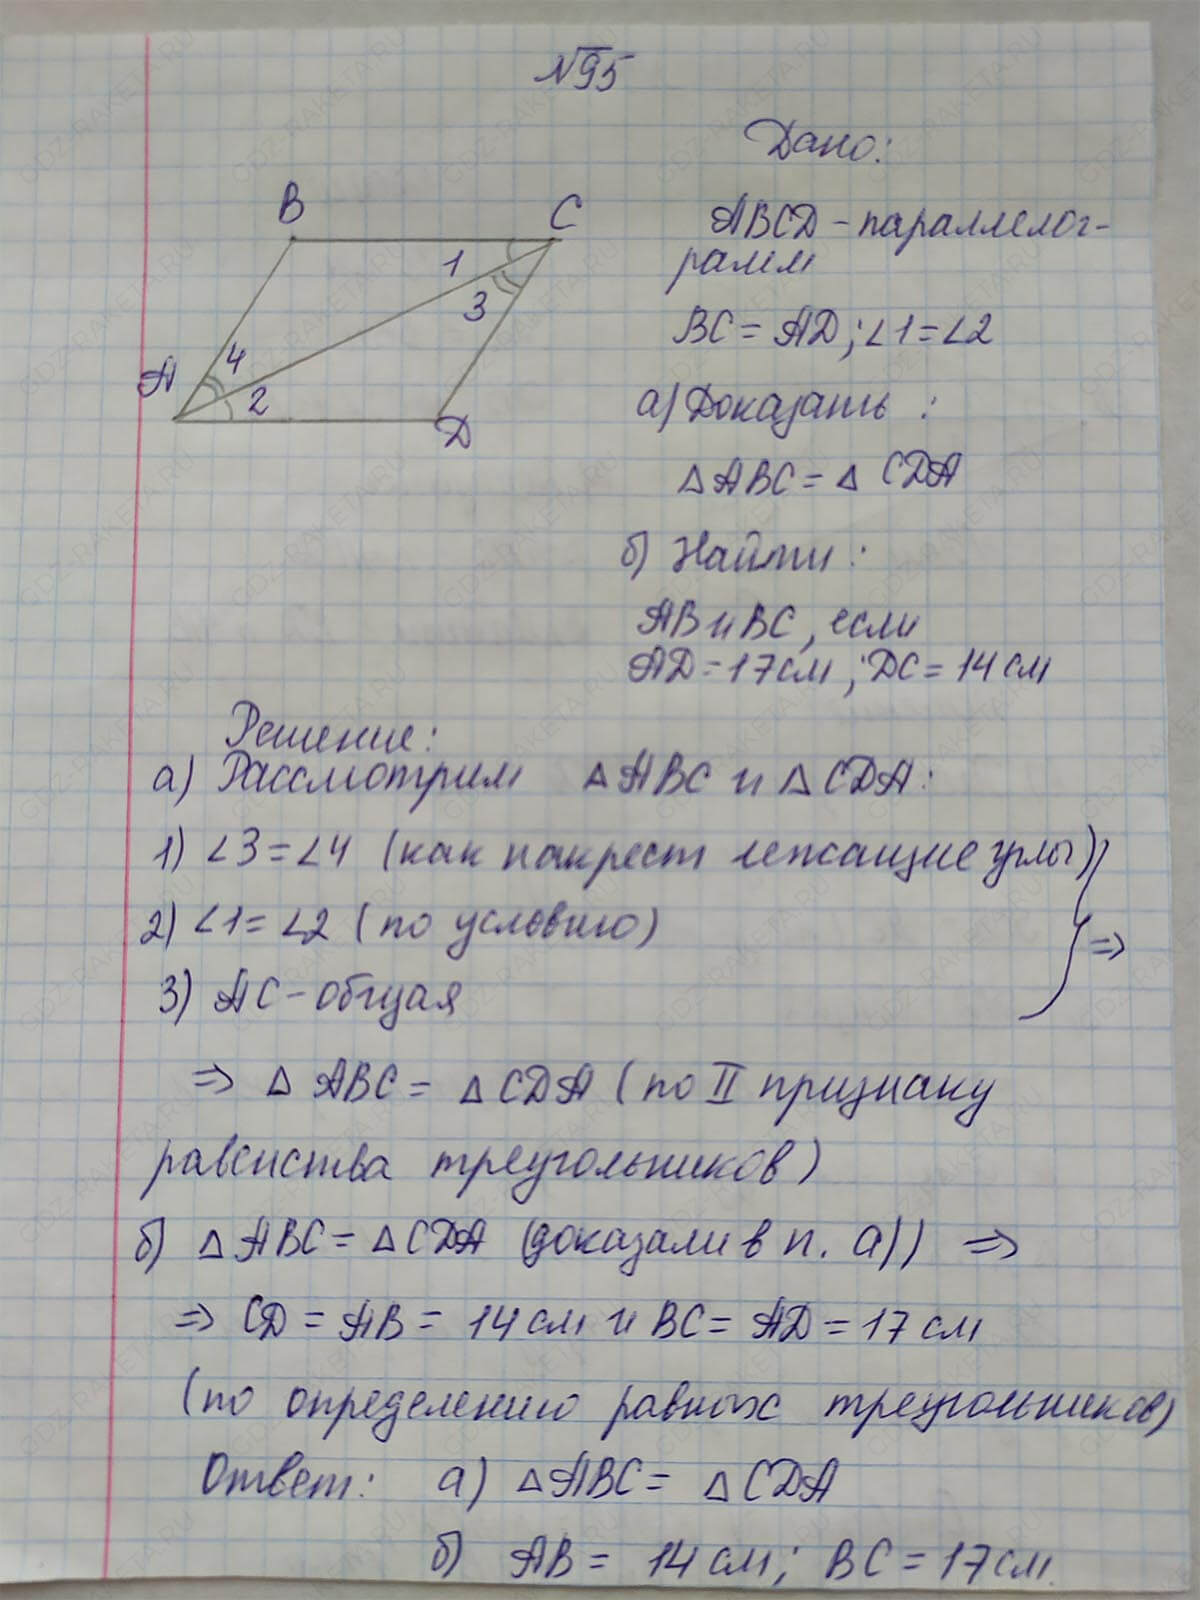 №95
Дано:
B
C
ABCD - параллелог-
рамм
1
3
BC = AD; ∠1 = ∠2
4
A
2
D
а) Доказать :
△ ABC = △ CDA
б) Найти :
AB и BC, если
AD = 17 см ; DC = 14 см
Решение:
а) Рассмотрим △ ABC и △ CDA:
1) ∠3 = ∠4 (как накрест лежащие углы)
2) ∠1 = ∠2 (по условию)
⇒
3) AC - общая
⇒ △ ABC = △ CDA (по II признаку
равенства треугольников)
б) △ ABC = △ CDA (доказали в п. а)) ⇒
⇒ CD = AB = 14 см и BC = AD = 17 см
(по определению равных треугольников)
Ответ: а) △ ABC = △ CDA
б) AB = 14 см; BC = 17 см.
GDZ-RAKETA.RU